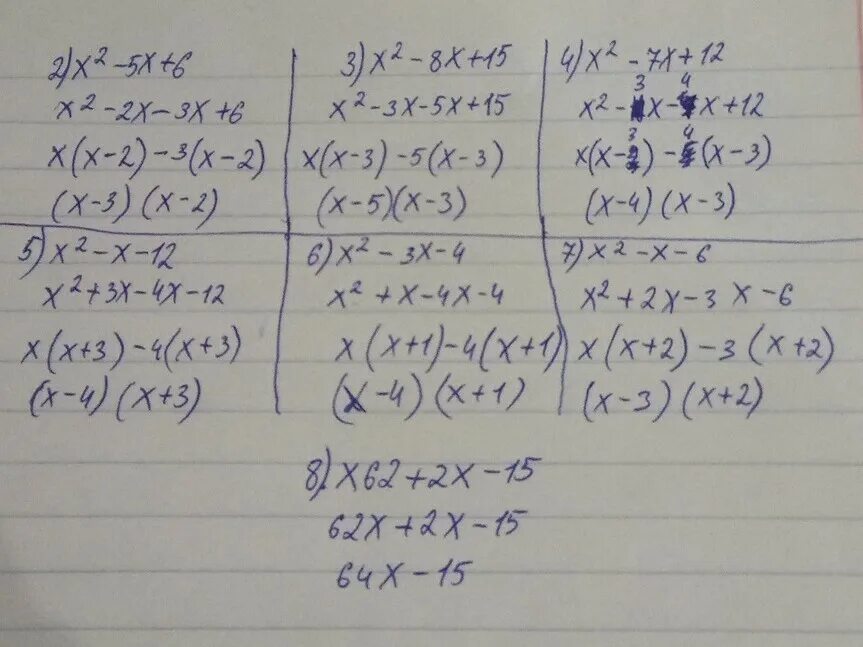 2) x² - 5x + 6
x² - 2x - 3x + 6
x(x-2) - 3(x-2)
(x-3)(x-2)
3) x² - 8x + 15
x² - 3x - 5x + 15
x(x-3) - 5(x-3)
(x-5)(x-3)
4) x² - 7x + 12
x² - 3x - 4x + 12
x(x-3) - 4(x-3)
(x-4)(x-3)
5) x² - x - 12
x² + 3x - 4x - 12
x(x+3) - 4(x+3)
(x-4)(x+3)
6) x² - 3x - 4
x² + x - 4x - 4
x(x+1) - 4(x+1)
(x-4)(x+1)
7) x² - x - 6
x² + 2x - 3x - 6
x(x+2) - 3(x+2)
(x-3)(x+2)
8) x62 + 2x - 15
62x + 2x - 15
64x - 15